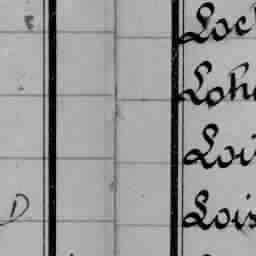 Loc
Loh
Loi
D Lois